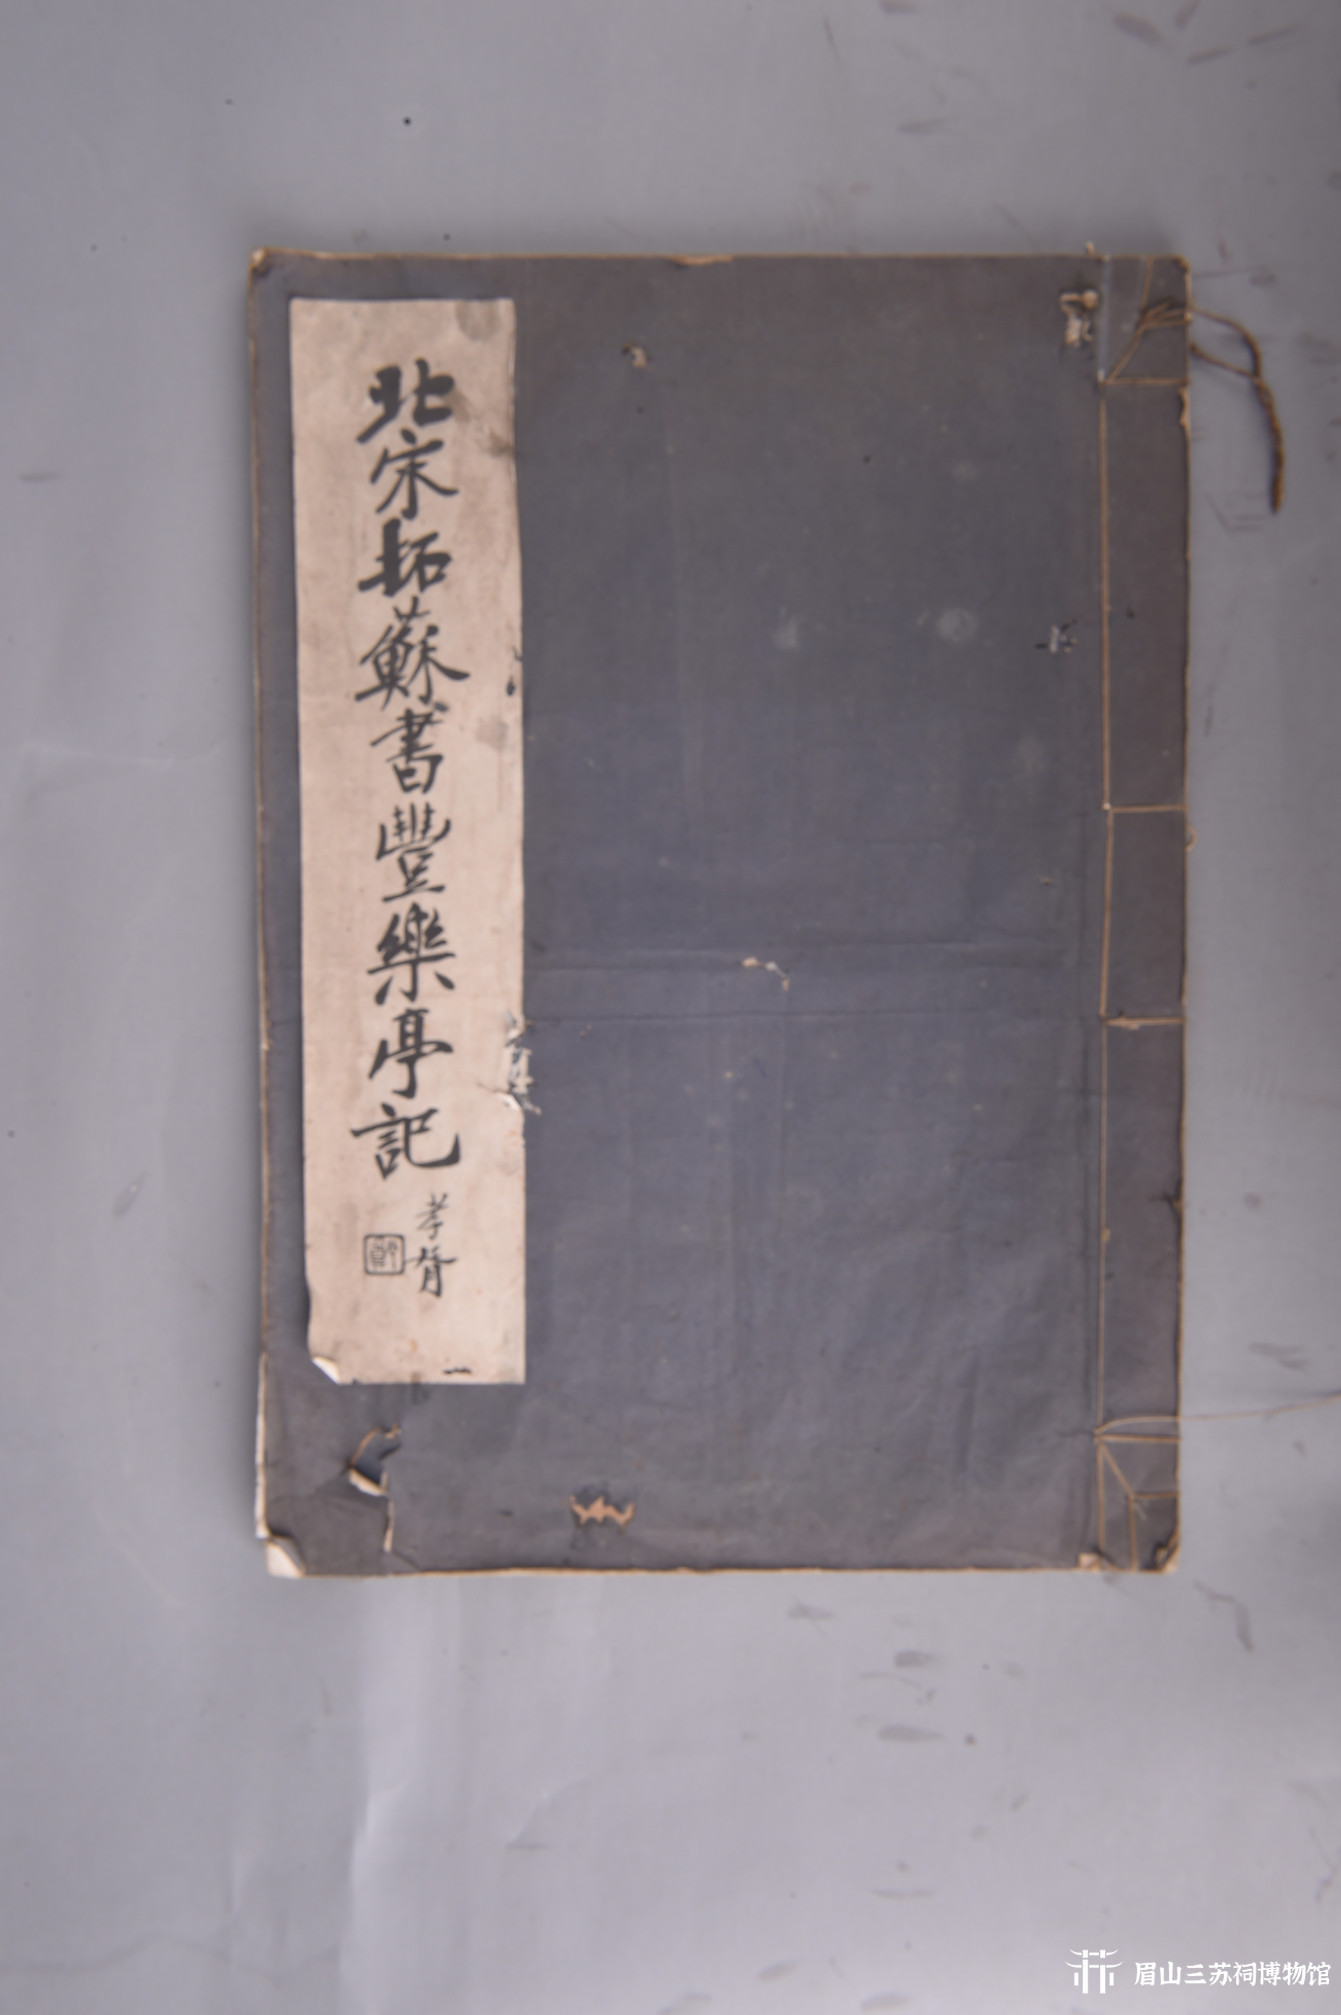 北宋拓蘇書豐樂亭記
孝胥
鄭
眉山三苏祠博物馆